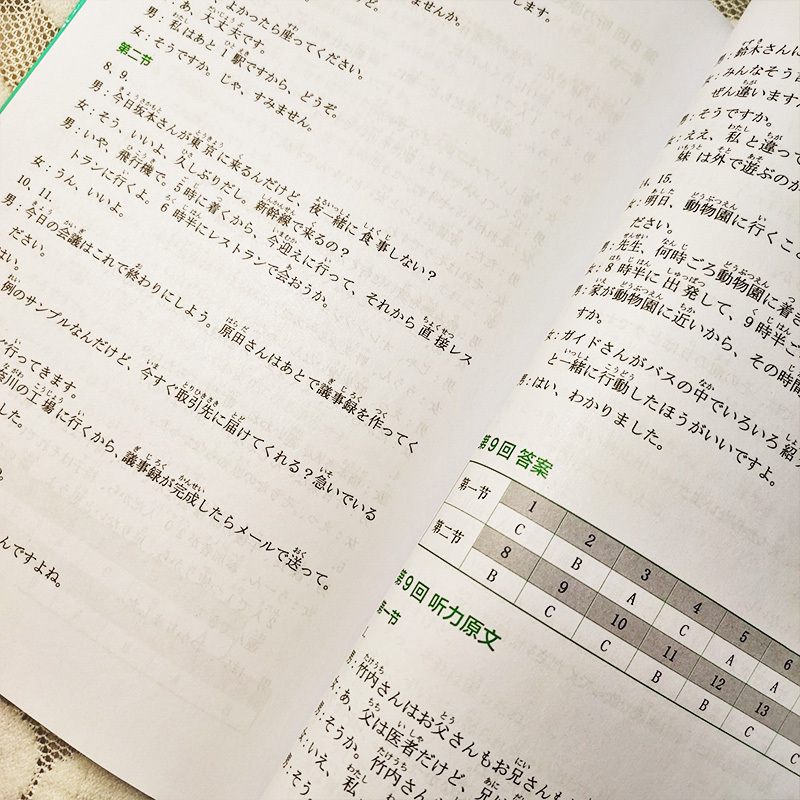 ませんか。
します。
あ、よかったら座ってください。
男：大丈夫です。
男：私はあと1駅ですから、どうぞ。
女：そうですか。じゃ、すみません。
第二节
8、9.
男：今日坂本さんが東京に来るんだけど、夜一緒に食事しない？
女：そう、いいよ、久しぶりだし。新幹線で来るの？
男：いや、飛行機で。5時に着くから、今迎えに行って、それから直接レス
トランに行くよ。6時半にレストランで会おうか。
女：うん、いいよ。
10、11.
男：今日の会議はこれで終わりにしよう。原田さんはあとで議事録を作ってく
ださい。
はい。
例のサンプルなんだけど、今すぐ取引先に届けてくれる？急いでいる
行ってきます。
川の工場に行くから、議事録が完成したらメールで送って。
した。
んですよね。
男：鈴木さんに
女：みんなそう
ぜん違います
男：そうですか。
女：ええ、私と違って
妹は外で遊ぶのが
14、15.
女：明日、動物園に行くこと
ださい。
男：先生、何時ごろ動物園に着き
女：8時半に出発して、9時半ご
男：家が動物園に近いから、その時間
すか。
女：ガイドさんがバスの中でいろいろ紹
と一緒に行動したほうがいいですよ。
男：はい、わかりました。
第9回 答案
第一节 1 2 3 4 5 6
C B A C A A
第二节 8 9 10 11 12 13
B C C B B C C
第9回 听力原文
第一节
1.
男：竹内さんはお父さんもお兄さんも
女：あ、父は医者だけど、兄は
男：そうか。竹内さんも
女：いえ、私
男：そう。